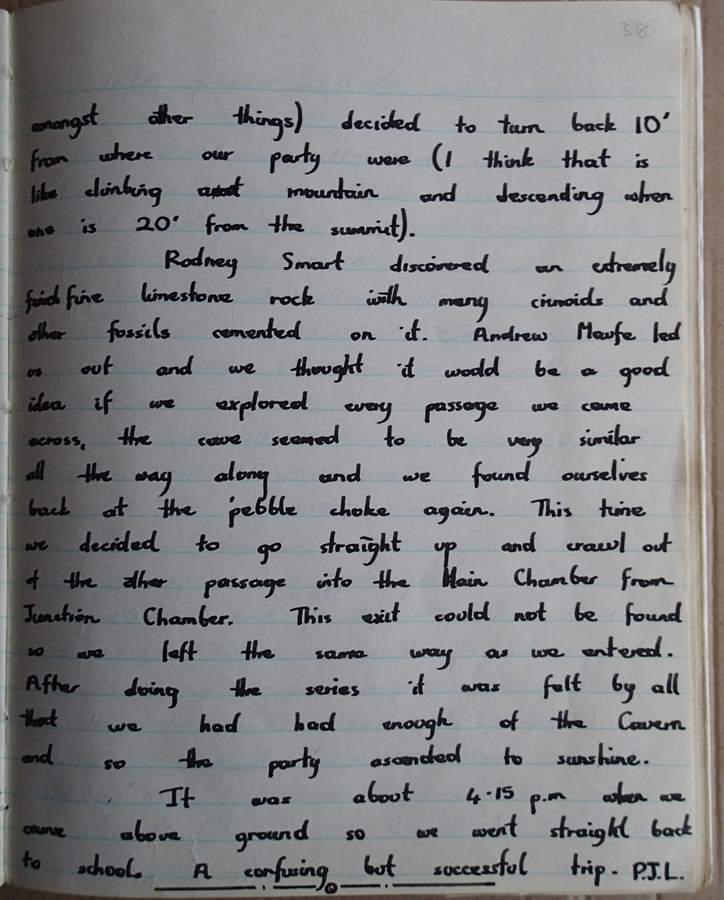 38
amongst other things) decided to turn back 10'
from where our party were (I think that is
like climbing a mountain and descending when
one is 20' from the summit).
Rodney Smart discovered an extremely
fine limestone rock with many crinoids and
other fossils cemented on it. Andrew Mawfe led
us out and we thought it would be a good
idea if we explored every passage we came
across, the cave seemed to be very similar
all the way along and we found ourselves
back at the pebble choke again. This time
we decided to go straight up and crawl out
of the other passage into the Main Chamber from
Junction Chamber. This exit could not be found
so we left the same way as we entered.
After doing the series it was felt by all
that we had had enough of the Cavern
and so the party ascended to sunshine.
It was about 4.15 p.m when we
came above ground so we went straight back
to school. A confusing but successful trip. P.J.L.